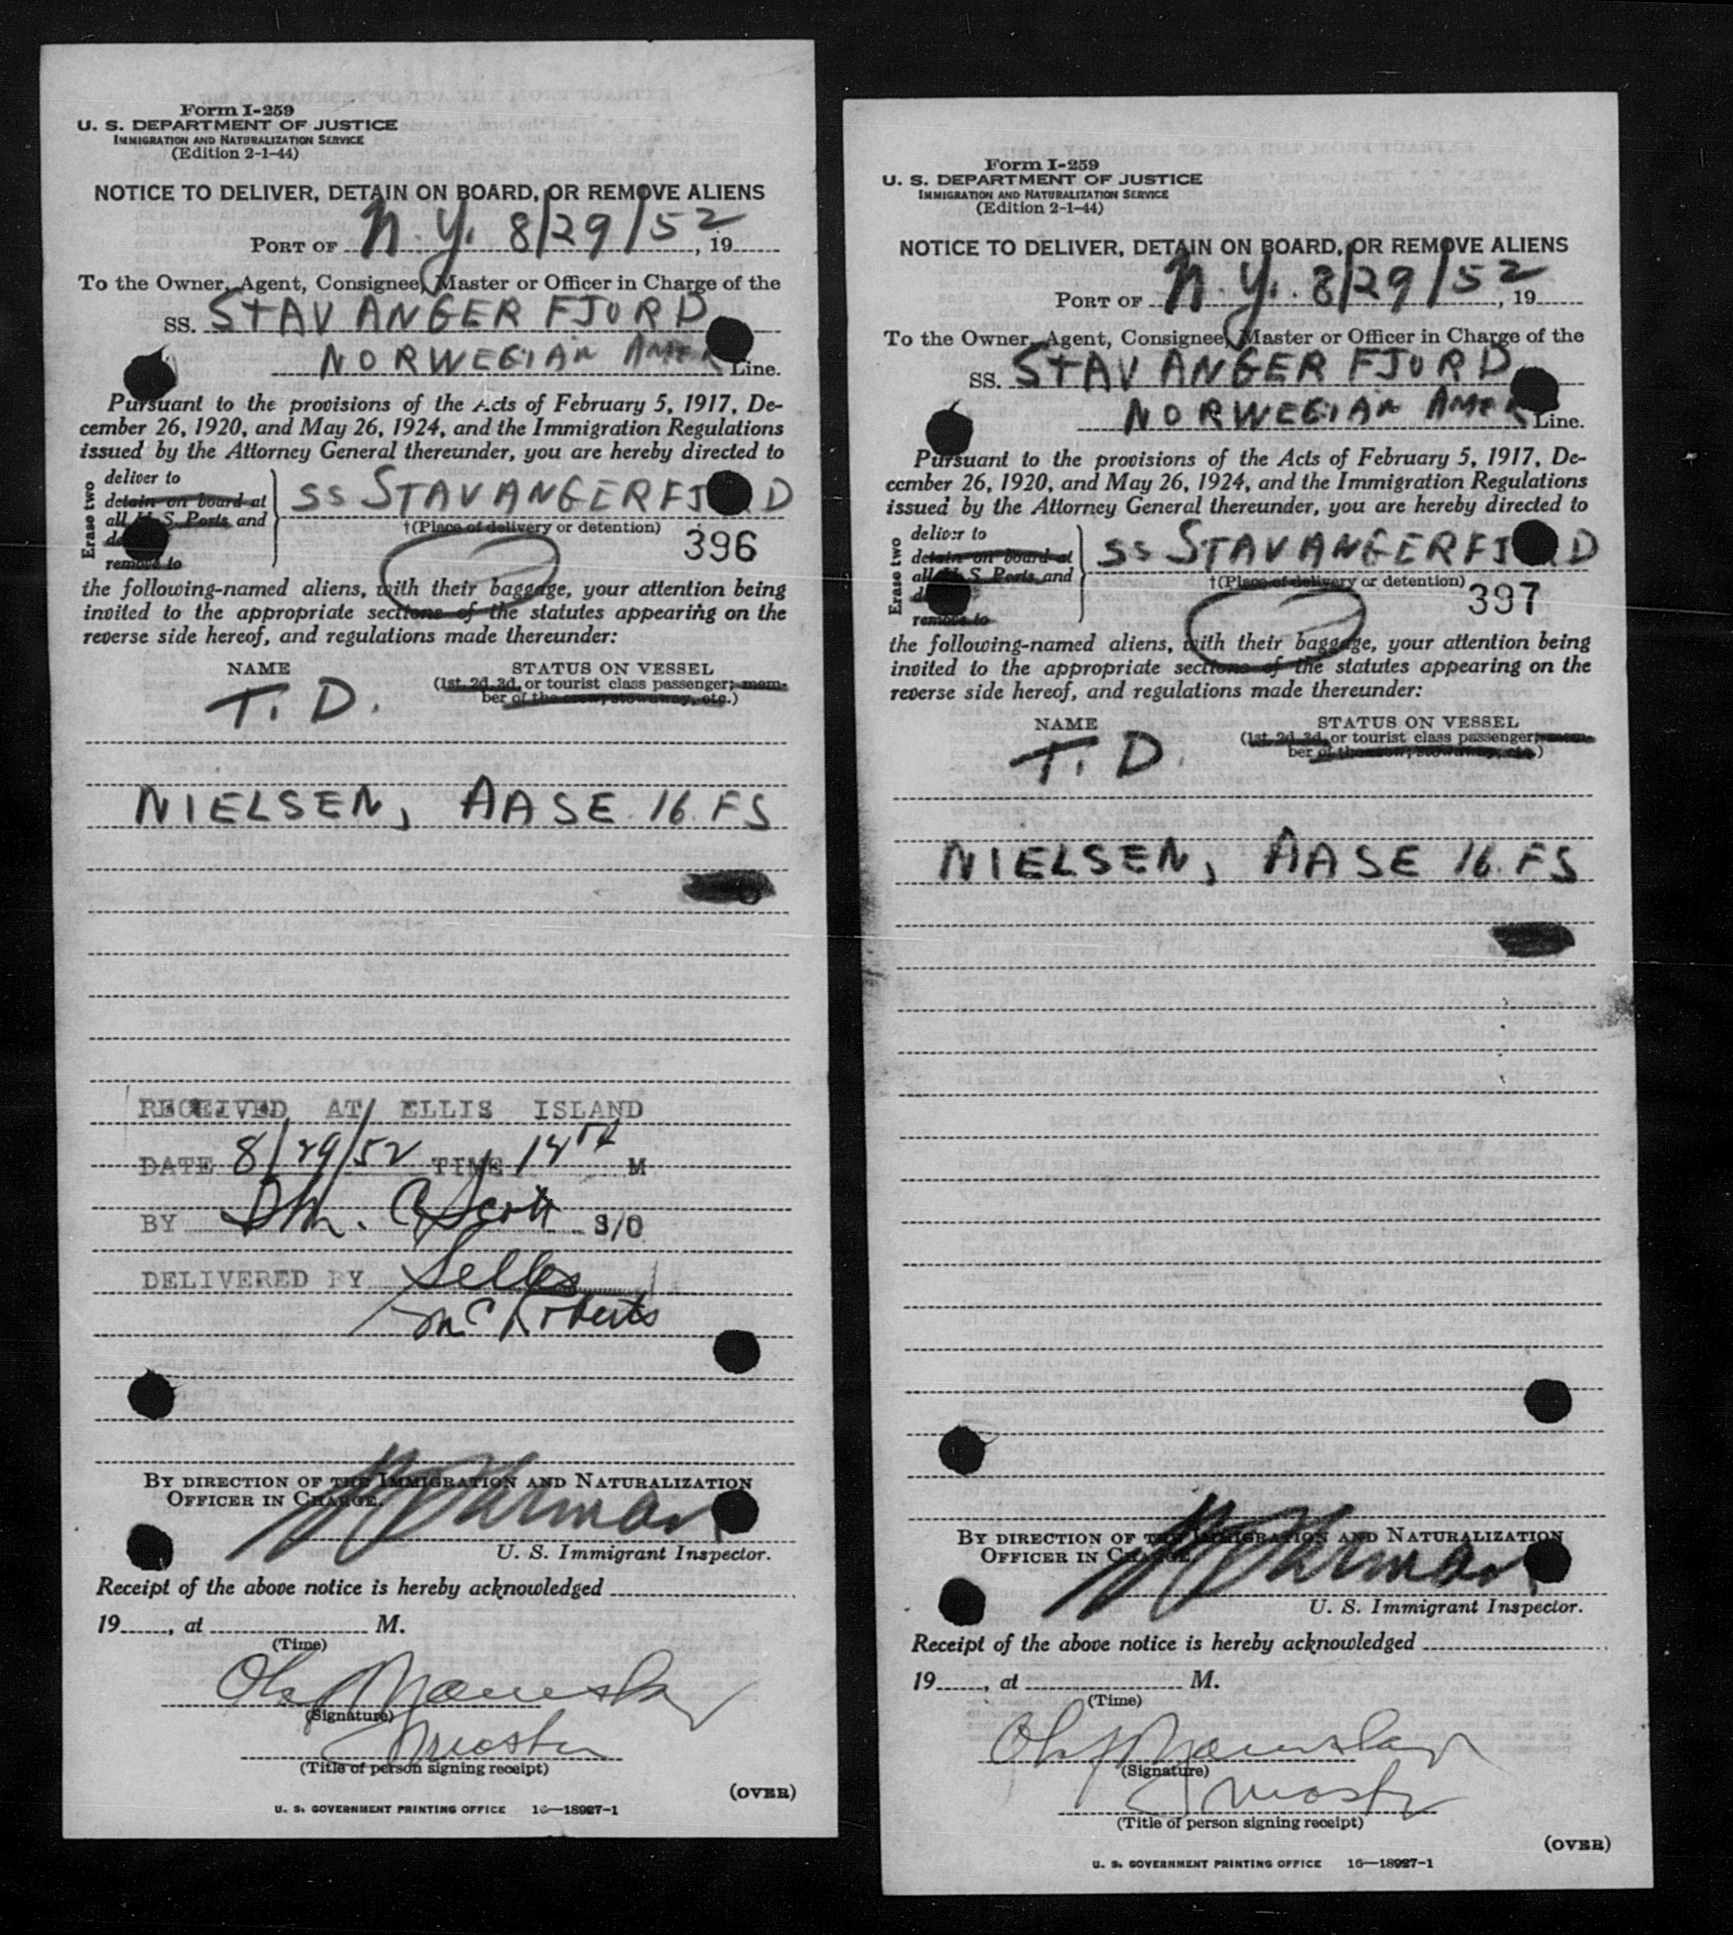 Form I-259
U. S. DEPARTMENT OF JUSTICE
IMMIGRATION AND NATURALIZATION SERVICE
(Edition 2-1-44)
NOTICE TO DELIVER, DETAIN ON BOARD, OR REMOVE ALIENS
PORT OF N.Y. 8/29/52, 19
To the Owner, Agent, Consignee, Master or Officer in Charge of the
SS. STAVANGERFJORD
NORWEGIAN AMER Line.
Pursuant to the provisions of the Acts of February 5, 1917, De-
cember 26, 1920, and May 26, 1924, and the Immigration Regulations
issued by the Attorney General thereunder, you are hereby directed to
Erase two
deliver to
detain on board at
all U. S. Ports and
remove to
SS STAVANGERFJ D
†(Place of delivery or detention)
396
the following-named aliens, with their baggage, your attention being
invited to the appropriate sections of the statutes appearing on the
reverse side hereof, and regulations made thereunder:
NAME STATUS ON VESSEL
(1st, 2d, 3d, or tourist class passenger; mem-
ber of the crew, stowaway, etc.)
T. D.
NIELSEN, AASE 16 FS
RECEIVED AT ELLIS ISLAND
DATE 8/29/52 TIME M
BY Scott S/O
DELIVERED BY Selles
McRoberts
BY DIRECTION OF THE IMMIGRATION AND NATURALIZATION
OFFICER IN CHARGE.
U. S. Immigrant Inspector.
Receipt of the above notice is hereby acknowledged
19, at M.
(Time)
(Signature)
(Title of person signing receipt)
(OVER)
U. S. GOVERNMENT PRINTING OFFICE 16—18927-1
Form I-259
U. S. DEPARTMENT OF JUSTICE
IMMIGRATION AND NATURALIZATION SERVICE
(Edition 2-1-44)
NOTICE TO DELIVER, DETAIN ON BOARD, OR REMOVE ALIENS
PORT OF N.Y. 8/29/52, 19
To the Owner, Agent, Consignee, Master or Officer in Charge of the
SS. STAVANGERFJORD
NORWEGIAN AMER Line.
Pursuant to the provisions of the Acts of February 5, 1917, De-
cember 26, 1920, and May 26, 1924, and the Immigration Regulations
issued by the Attorney General thereunder, you are hereby directed to
Erase two
deliver to
detain on board at
all U. S. Ports and
remove to
SS STAVANGERFJ D
†(Place of delivery or detention)
397
the following-named aliens, with their baggage, your attention being
invited to the appropriate sections of the statutes appearing on the
reverse side hereof, and regulations made thereunder:
NAME STATUS ON VESSEL
(1st, 2d, 3d, or tourist class passenger; mem-
ber of the crew, stowaway, etc.)
T. D.
NIELSEN, AASE 16 FS
BY DIRECTION OF THE IMMIGRATION AND NATURALIZATION
OFFICER IN CHARGE
U. S. Immigrant Inspector.
Receipt of the above notice is hereby acknowledged
19, at M.
(Time)
(Signature)
(Title of person signing receipt)
(OVER)
U. S. GOVERNMENT PRINTING OFFICE 16—18927-1